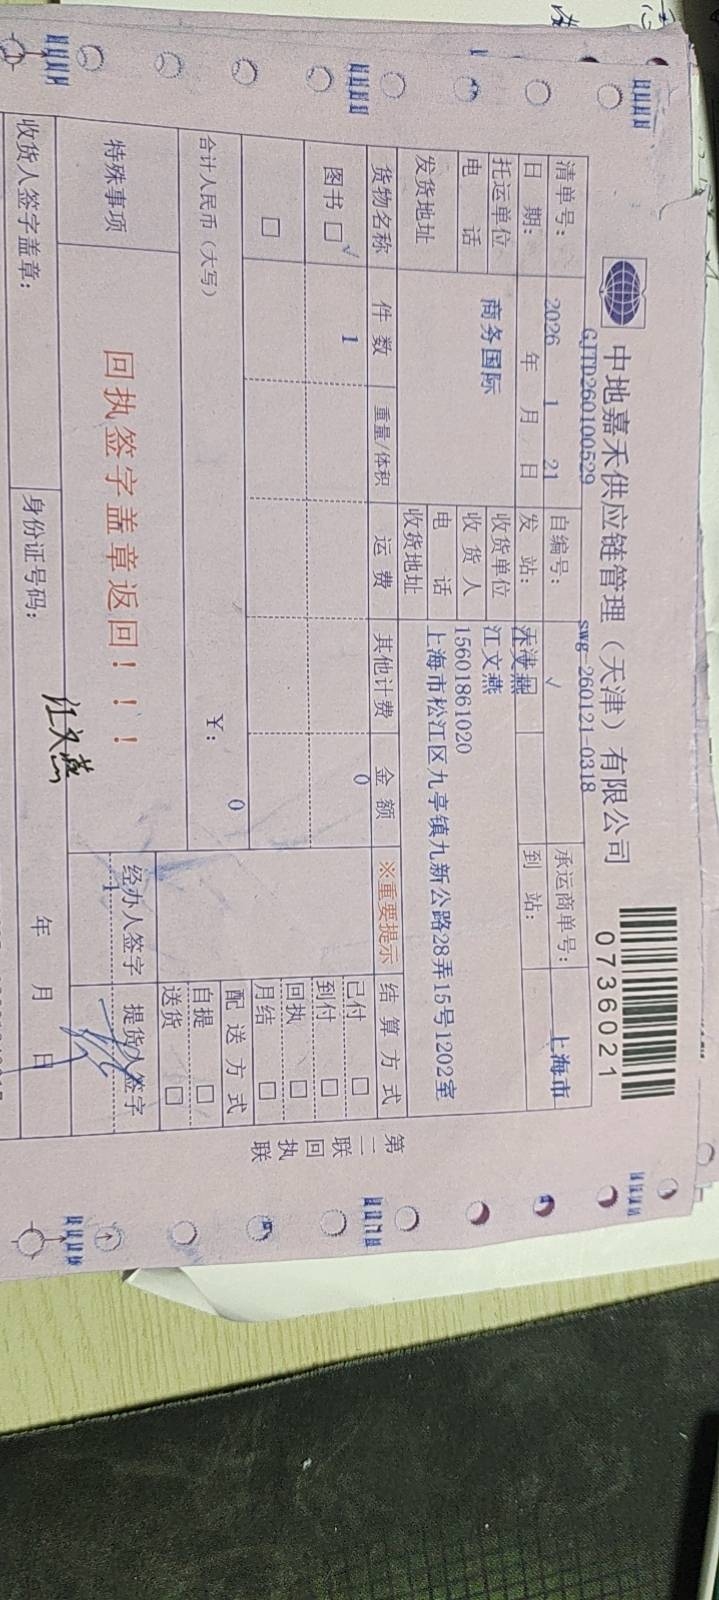 中地嘉禾供应链管理（天津）有限公司
0736021
清单号： GJTD260100529 自编号： swg-260121-0318 承运商单号：
日 期： 2026 年 1 月 21 日 发 站： √ 到 站： 上海市
托运单位 商务国际 收货单位
收 货 人 江文燕
电 话 电 话 15601861020
发货地址 收货地址 上海市松江区九亭镇九新公路28弄15号1202室
货物名称 件 数 重量/体积 运 费 其他计费 金 额 ※重要提示 结 算 方 式
图书 □ √ 1 0 已付 □
到付 □
□ 回执 □
月结 □
合计人民币（大写） ￥： 0 配 送 方 式
自提 □
送货 □
特殊事项 回执签字盖章返回！！！ 经办人签字 提货人签字
1
收货人签字盖章： 身份证号码： 年 月 日
江文燕
第二联 回执联